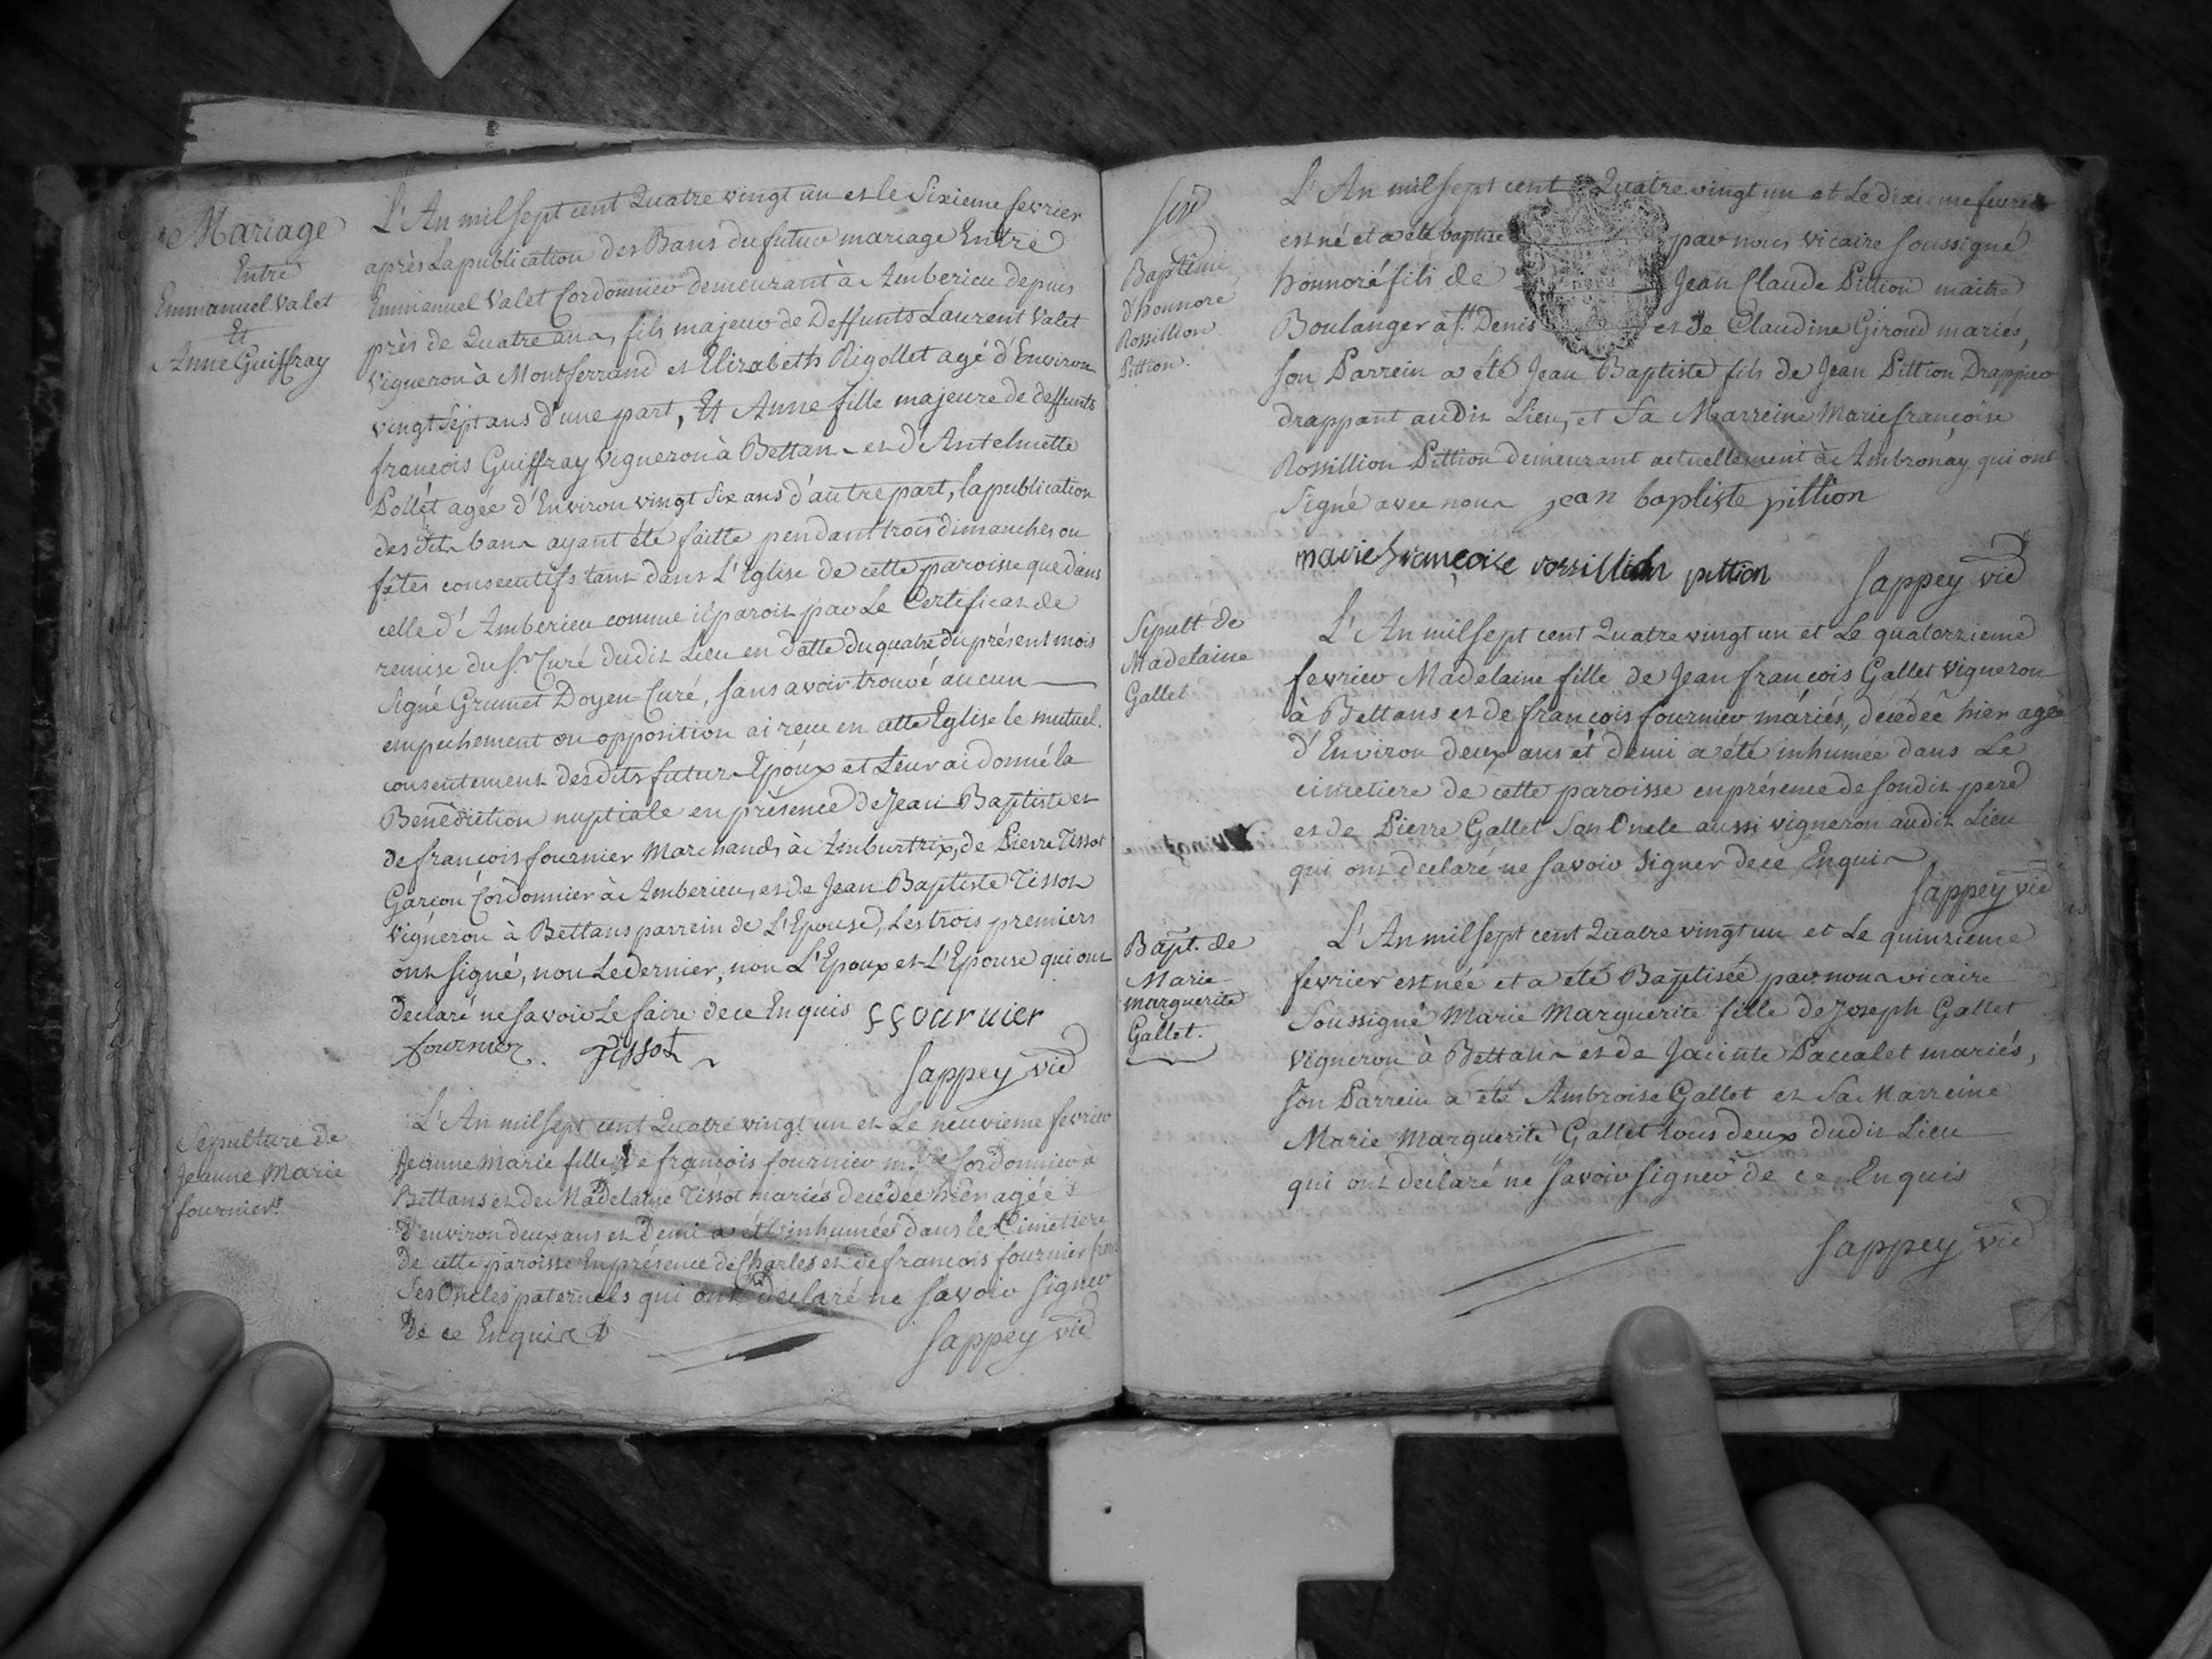 Mariage
Entre
Emmanuel Valet
Et
Anne Guiffray
L'An mil sept cent Quatre vingt un et le Sixieme fevrier
après La publication des Bans du futur mariage Entre
Emmanuel Valet Cordonnier demeurant à Amberieu depuis
près de Quatre ans, fils majeur de Deffunts Laurent Valet
Vigneron à Montferrand et Elizabeth Rigollet agé d'Environ
vingt Sept ans d'une part, Et Anne fille majeure de deffunts
françois Guiffray Vigneron à Bettans et d'Antelmette
Pollet agée d'Environ vingt Six ans d'autre part, la publication
desdits bans ayant été faitte pendant trois dimanches ou
fêtes consecutifs tant dans L'Eglise de cette paroisse que dans
celle d'Amberieu comme il paroit par Le Certificat de
remise du Sr Curé dudit Lieu en datte du quatre du présent mois
Signé Grumet Doyen Curé, sans avoir trouvé aucun
empechement ou opposition ai reçu en cette Eglise le mutuel
consentement desdits futurs Epoux et Leur ai donné la
Benediction nuptiale en présence de Jean Baptiste et
de françois fournier Marchands à Amburtrix, de Pierre Tissot
Garçon Cordonnier à Amberieu, et de Jean Baptiste Tissot
Vigneron à Bettans parrein de L'Epouse, Les trois premiers
ont signé, non Le dernier, non L'Epoux et L'Epouse qui ont
declaré ne savoir Le faire de ce Enquis fournier
fournier. Tissot
Sappey vic
Sepulture de
Jeanne Marie
fournier
L'An mil sept cent Quatre vingt un et Le neuvieme fevrier
Jeanne Marie fille de françois fournier mtre Cordonnier a
Bettans et de Madelaine Tissot mariés decedée hier agée
D'environ deux ans et Demi a été inhumée dans le Cimetiere
de cette paroisse En présence de Charles et de françois fournier
Ses Oncles paternels qui ont declaré ne savoir signer
De ce Enquis
Sappey vic
Baptême
d'honnoré
Rossillion
Pittion.
L'An mil sept cent Quatre vingt un et Le dixieme fevrier
est né et a été baptisé par nous vicaire soussigné
honnoré fils de Jean Claude Pittion maitre
Boulanger à St Denis et de Claudine Giroud mariés,
son Parrein a été Jean Baptiste fils de Jean Pittion Drappier
drappant audit Lieu, et Sa Marreine Marie françoise
Rossillion Pittion demeurant actuellement à Ambronay qui ont
Signé avec nous jean baptiste pittion
marie françoise rossillion pittion
Sappey vic
Sepult de
Madelaine
Gallet
L'An mil sept cent Quatre vingt un et Le quatorzieme
fevrier Madelaine fille de Jean françois Gallet Vigneron
à Bettans et de françois fournier mariés, decedée hier agée
d'Environ deux ans et demi a été inhumée dans Le
cimetiere de cette paroisse en présence de sondit pere
et de Pierre Gallet Son Oncle aussi vigneron audit Lieu
qui ont declaré ne savoir signer de ce Enquis
Sappey vic
Bapt. de
Marie
marguerite
Gallet.
L'An mil sept cent Quatre vingt un et Le quinzieme
fevrier est née et a été Baptisée par nous vicaire
Soussigné Marie Marguerite fille de Joseph Gallet
vigneron à Bettans et de Jacinte Paccalet mariés,
Son Parrein a été Ambroise Gallet et Sa Marreine
Marie Marguerite Gallet tous deux dudit Lieu
qui ont declaré ne savoir signer de ce Enquis
Sappey vic